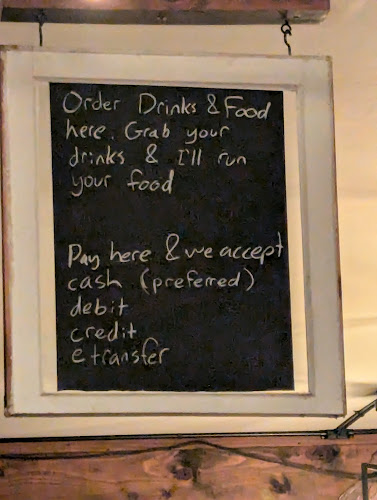 Order Drinks & Food
here. Grab your
drinks & I'll run
your food
Pay here & we accept
cash (preferred)
debit
credit
e transfer